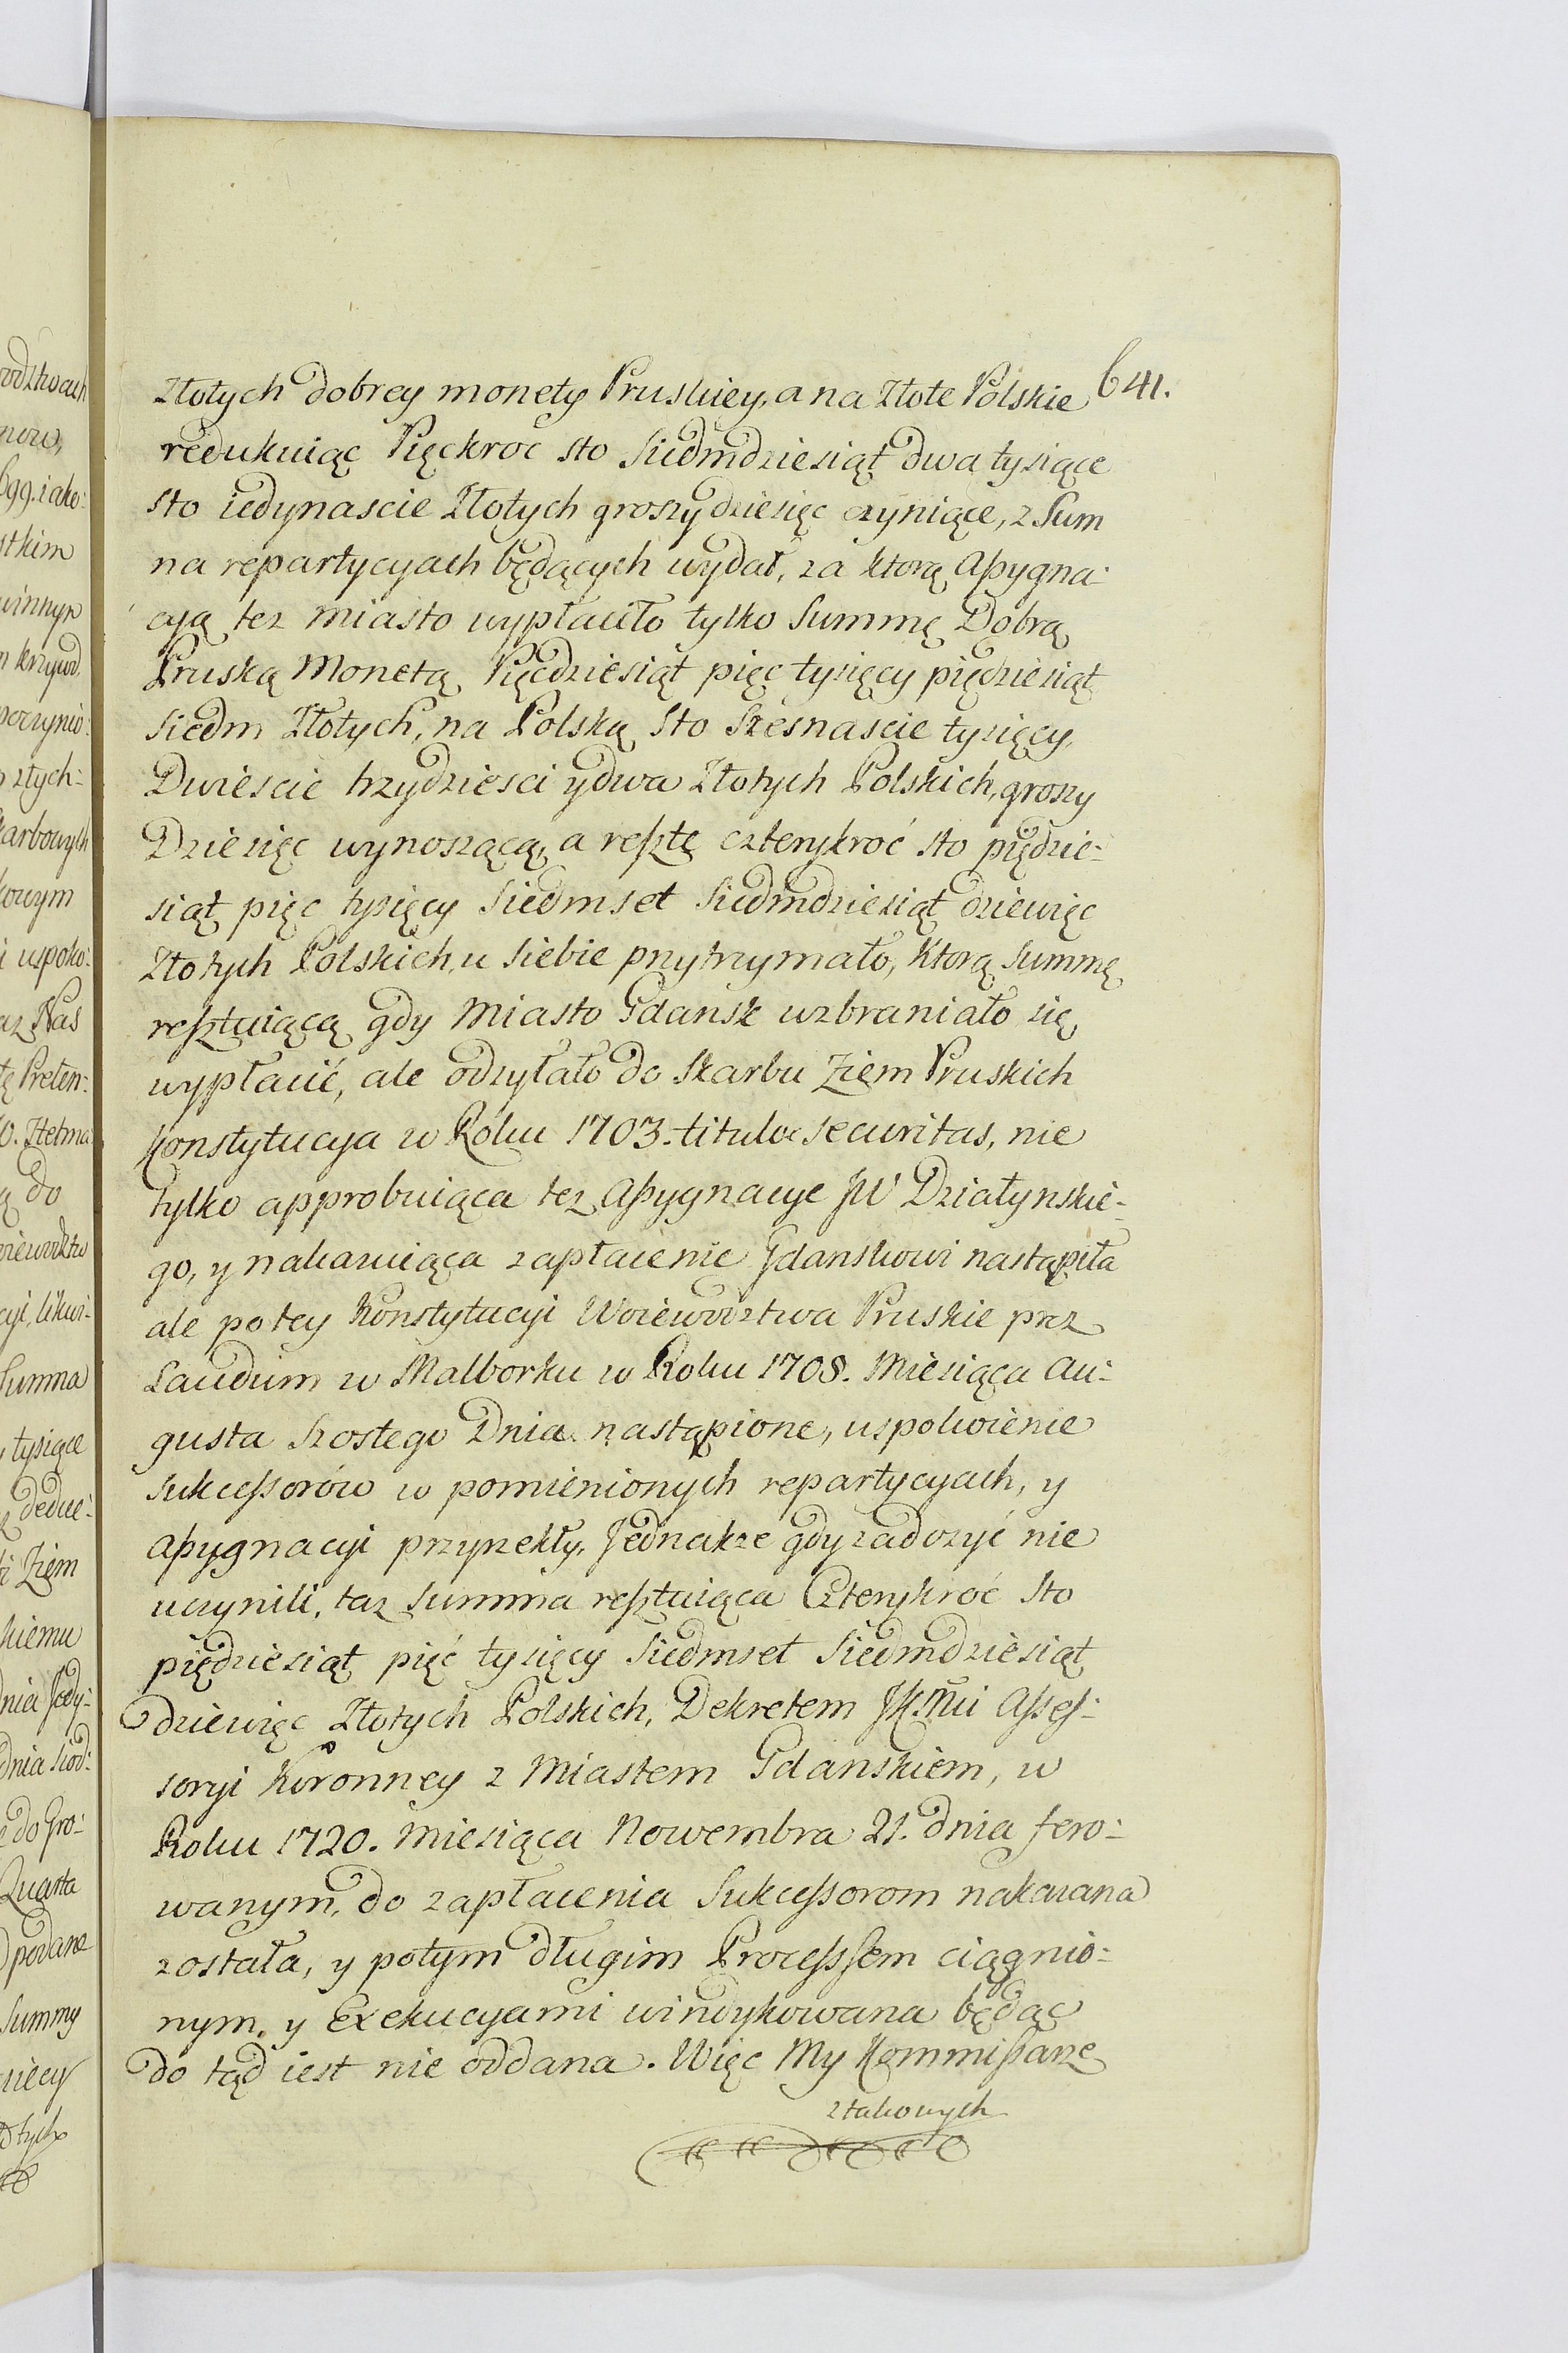 641.
Złotych dobrey monety Pruskiey, a na Złote Polskie
redukuiąc Pięckroc sto Siedmdziesiąt dwa tysiące
sto iedynascie Złotych groszy dziesięc czyniące, z Sum
na repartycyach będących wydał, za ktorą Assygna-
cyą tez miasto wypłaciło tylko Summę Dobrą
Pruską Monetą Pięcdziesiąt pięc tysięcy pięcdziesiąt
siedm Złotych, na Polską Sto Szesnascie tysięcy,
Dwiescie trzydziesci y dwa Złotych Polskich, groszy
Dziesięc wynoszącą, a resztę czterykroć sto piędzie-
siąt pięc tysięcy Siedmset Siedmdziesiąt dziewięc
Złotych Polskich, u siebie przytrzymało, Ktorą Summę
resztuiącą gdy Miasto Gdansk wzbraniało się
wypłacić, ale odzyłało do Skarbu Ziem Pruskich
Konstytucya w Roku 1703. titulo securitas, nie
tylko approbuiąca tez Assygnacye JW Działynskie-
go, y nakazuiąca zapłacenie Gdanskowi nastąpiła
ale po tey Konstytucyi Woiewodztwa Pruskie prz
Laudum w Malborku w Roku 1708. Miesiąca Au-
gusta Szostego Dnia nastąpione, uspokoienie
sukcessorów w pomienionych repartycyach, y
Assygnacyi przyrzekły. Jednakze gdy zadozyć nie
uczynili, taz Summa resztuiąca Czterykroć Sto
piędziesiąt pięć tysięcy Siedmset Siedmdziesiąt
dziewięc Złotych Polskich, Dekretem JKMci Asses-
soryi Koronney z Miastem Gdanskiem, w
Roku 1720. Miesiąca Nowembra 21. dnia fero-
wanym, do zapłacenia Sukcessorom nakazana
została, y potym długim Processem ciągnio-
nym, y Exekucyami windykowana będąc
do tąd iest nie oddana. Więc My Kommissarze
z takowych